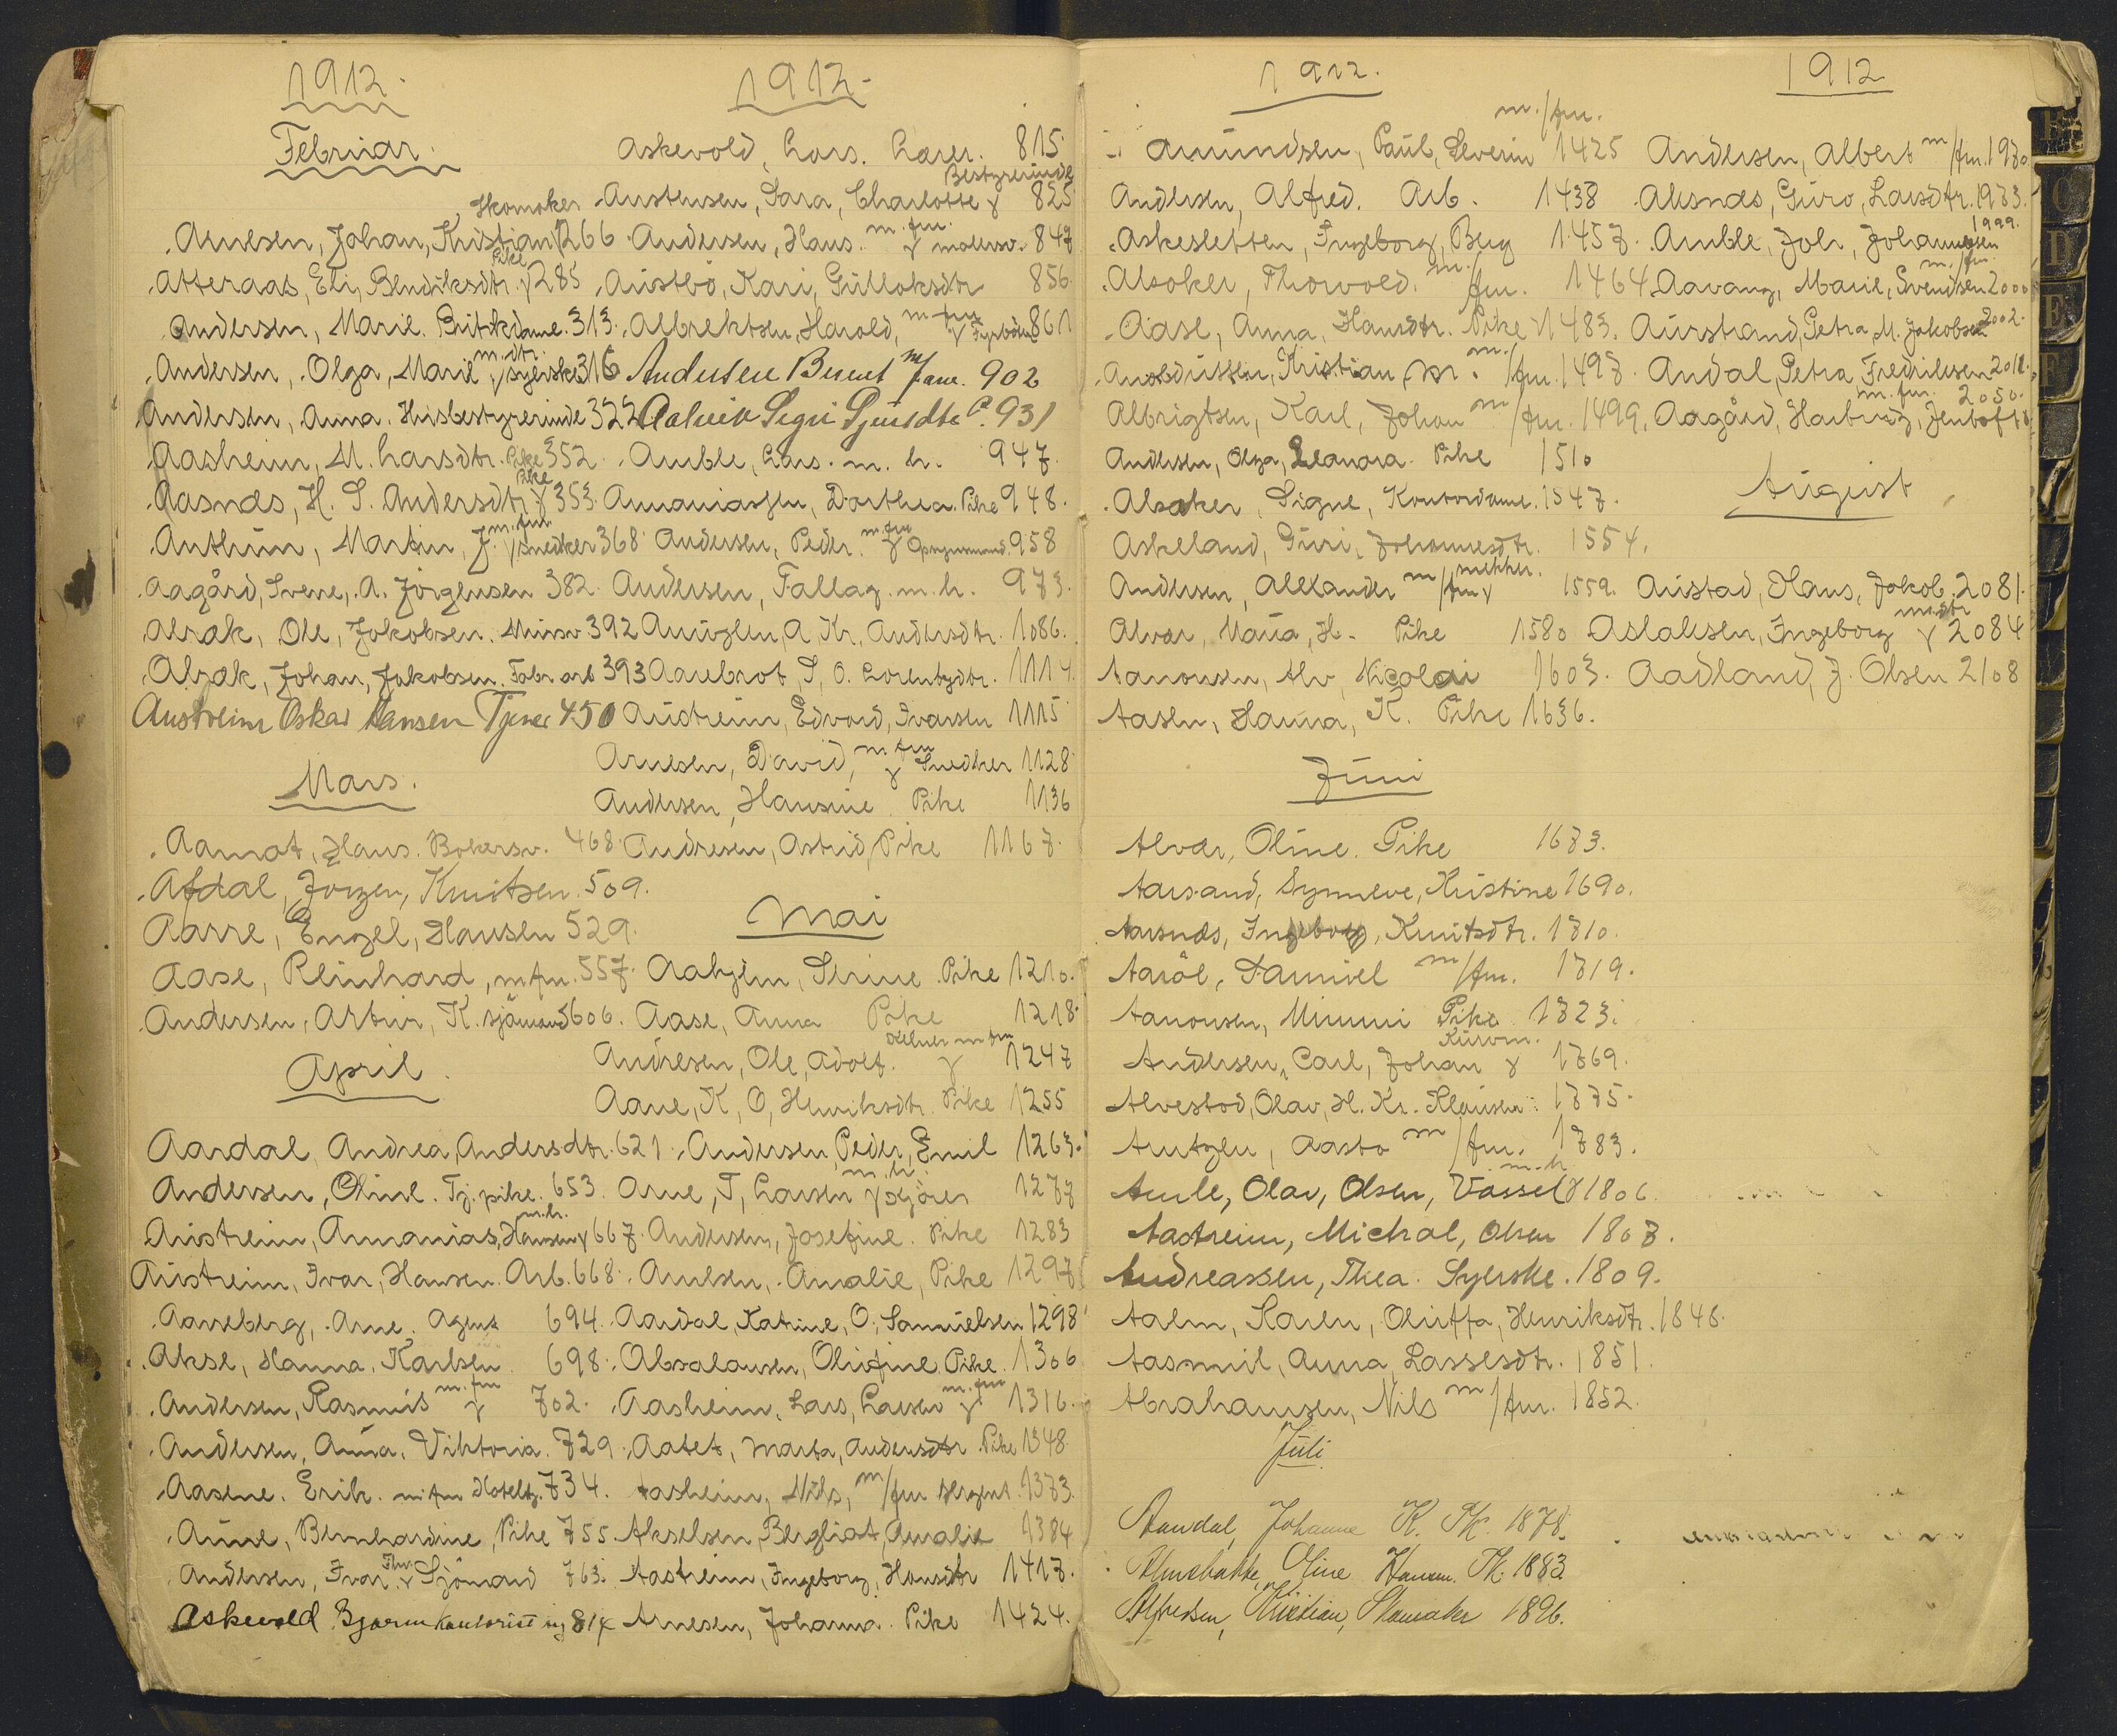 1912.
Februar.
Skomaker
Arnesen, Johan, Kristian 266
Pike
Atteraas, Eli, Bendiksdtr. 285
Andersen, Marie. Butikdame. 313.
m. dtr.
Andersen, Olga, Marie syerske 316
Andersen, Anna. Husbestyrerinde 322
Aasheim, M. Larsdtr. Pike 352
Pike
Aasnæs, H. S. Andersdtr 353.
m. fm
Anthun, Martin, J. snedker 368
Aagård, Svene, A. Jörgensen 382.
Alrak, Ole, Jakobsen. Mursv 392
Alrak, Johan, Jakobsen. Fabr arb 393
Austreim Oskar Hansen Tjener 450
Mars.
Aamot, Hans. Bakersv. 468.
Afdal, Jorgen, Knutsen. 509.
Aarre, Engel, Hansen 529.
Aase, Reinhard, m fm. 557.
Andersen, Artur, K. sjömand 606.
April.
Aardal, Andrea, Andersdtr. 621.
Andersen, Oline. Tj. pike. 653.
m. h.
Austreim, Ananias, Hansen 667.
Austreim, Ivar, Hansen. Arb. 668.
Aarseberg, Arne. Agent 694.
Akse, Hanna. Karlsen 698.
m. fm
Andersen, Rasmus 702.
Andersen, Anna, Viktoria. 729.
Aasene. Erik. m fm 734.
Aune, Bernhardine, Pike 755.
Andersen, Ivar Sjömand 763.
Askevold Bjarne Kontorist 814
1912.
Askevold, Lars. Lærer. 815.
Bestyrerinde
Austensen, Sara, Charlotte 825
m. fm.
Andersen, Hans. malersv. 847
Austbö, Kari, Gulleksdtr 856
m fm
Albrektsen, Harald, Fyrböter 861
Andersen Berent m/fam. 902
Aalvik Segri Sjursdtr P. 931
Amble, Lars. m. h. 947.
Ananiassen, Dorthea. Pike 948.
m. fm
Andersen, Peder. 958
Andersen, Fallag. m. h. 973.
A. Kr. Andersdtr. 1086.
Aarebrot, S, O. Lorentzdtr. 1114.
Austreim, Edvard, Ivarsen 1115
m. fm
Arnesen, David, Snedker 1128
Andersen, Hansine Pike 1136
Andresen, Astrid, Pike 1167.
Mai
Serine. Pike 1210.
Aase, Anna Pike 1218.
Kelner m fm
Andresen, Ole, Adolf. 1247
Aane, K, O, Henriksdtr. Pike 1255
Andersen, Peder, Emil 1263.
m. h.
Arne, T, Larsen 1277
Andersen, Josefine. Pike 1283
Amalie, Pike 1297
Aardal, Katrine, O, Samuelsen 1298
Absalonsen, Olufine Pike. 1306
m. fm
Aasheim, Lars, Larsen 1316.
Aatet, Marta, Andersdtr. Pike 1348
Aasheim, Nils, m/fm Agent. 1373.
Akselsen, Bergliot, Amalie 1384
Aastreim, Ingeborg, Hansdtr 1417.
Arnesen, Johanna. Pike 1424.
1912.
m./fm.
Amundsen, Paul, Severin 1425
Andersen, Alfred. Arb. 1438
Askesletten, Ingeborg, Berg 1457.
Alsaker, Thorvald. m./fm. 1464
Aase, Anna, Hansdtr. Pike 1483.
Kristian, M. m./fm. 1497.
Albrigtsen, Karl, Johan m/fm. 1499.
Andersen, Olga, Leanora. Pike 1510
Alsaker, Signe, Kontordame. 1547.
Askeland, Guri, Johannesdtr. 1554.
Andersen, Alexander m/fm 1559.
Alvær, Maria, H. Pike 1580
Aanonsen, Alv, Nicolai 1603.
Aasen, Hanna, K. Pike 1636.
Juni
Alvær, Oline. Pike 1673.
Aarsand, Synneve, Kristine 1690.
Aarsnæs, Ingeborg, Knutsdtr. 1710.
Aaröe, Samuel m/fm. 1719.
Aanonsen, Mimmi Pike 1723.
Kurvm.
Andersen, Carl, Johan 1769.
Alvestad, Olav, H. Kr. Klausen 1775.
Arntzen, Aasta m/fm. 1783.
m. h
Amle, Olav, Olsen, Vassel 1806.
Aastreim, Mickal, Olsen 1807.
Andreassen, Thea. Syerske. 1809.
Aalen, Karen, Oluffa, Henriksdtr. 1848.
Aasmul, Anna, Lassesdtr. 1851.
Abrahamsen, Nils m/fm. 1852.
Juli
Aandal, Johanne K. Pk. 1878.
Almebakke, Oline Hansen. Pk. 1883
Alfredsen, Kristian, Skomaker 1896.
1912
Andersen, Albert m/fm. 1970.
Aksnæs, Guro, Larsdtr. 1973.
1999.
Amble, Joh, Johannessen
m./fm.
Aavang, Marie, Svendsen 2000
Aurstrand, Petra M. Jakobsen 2002.
Andal, Petra Fredriksen 2011.
m. fm. 2050.
Aagård, Hartvig, Jentoft
August
Austad, Hans, Jakob. 2081.
m. dtr
Aslaksen, Ingeborg 2084
Aadland, J. Olsen 2108